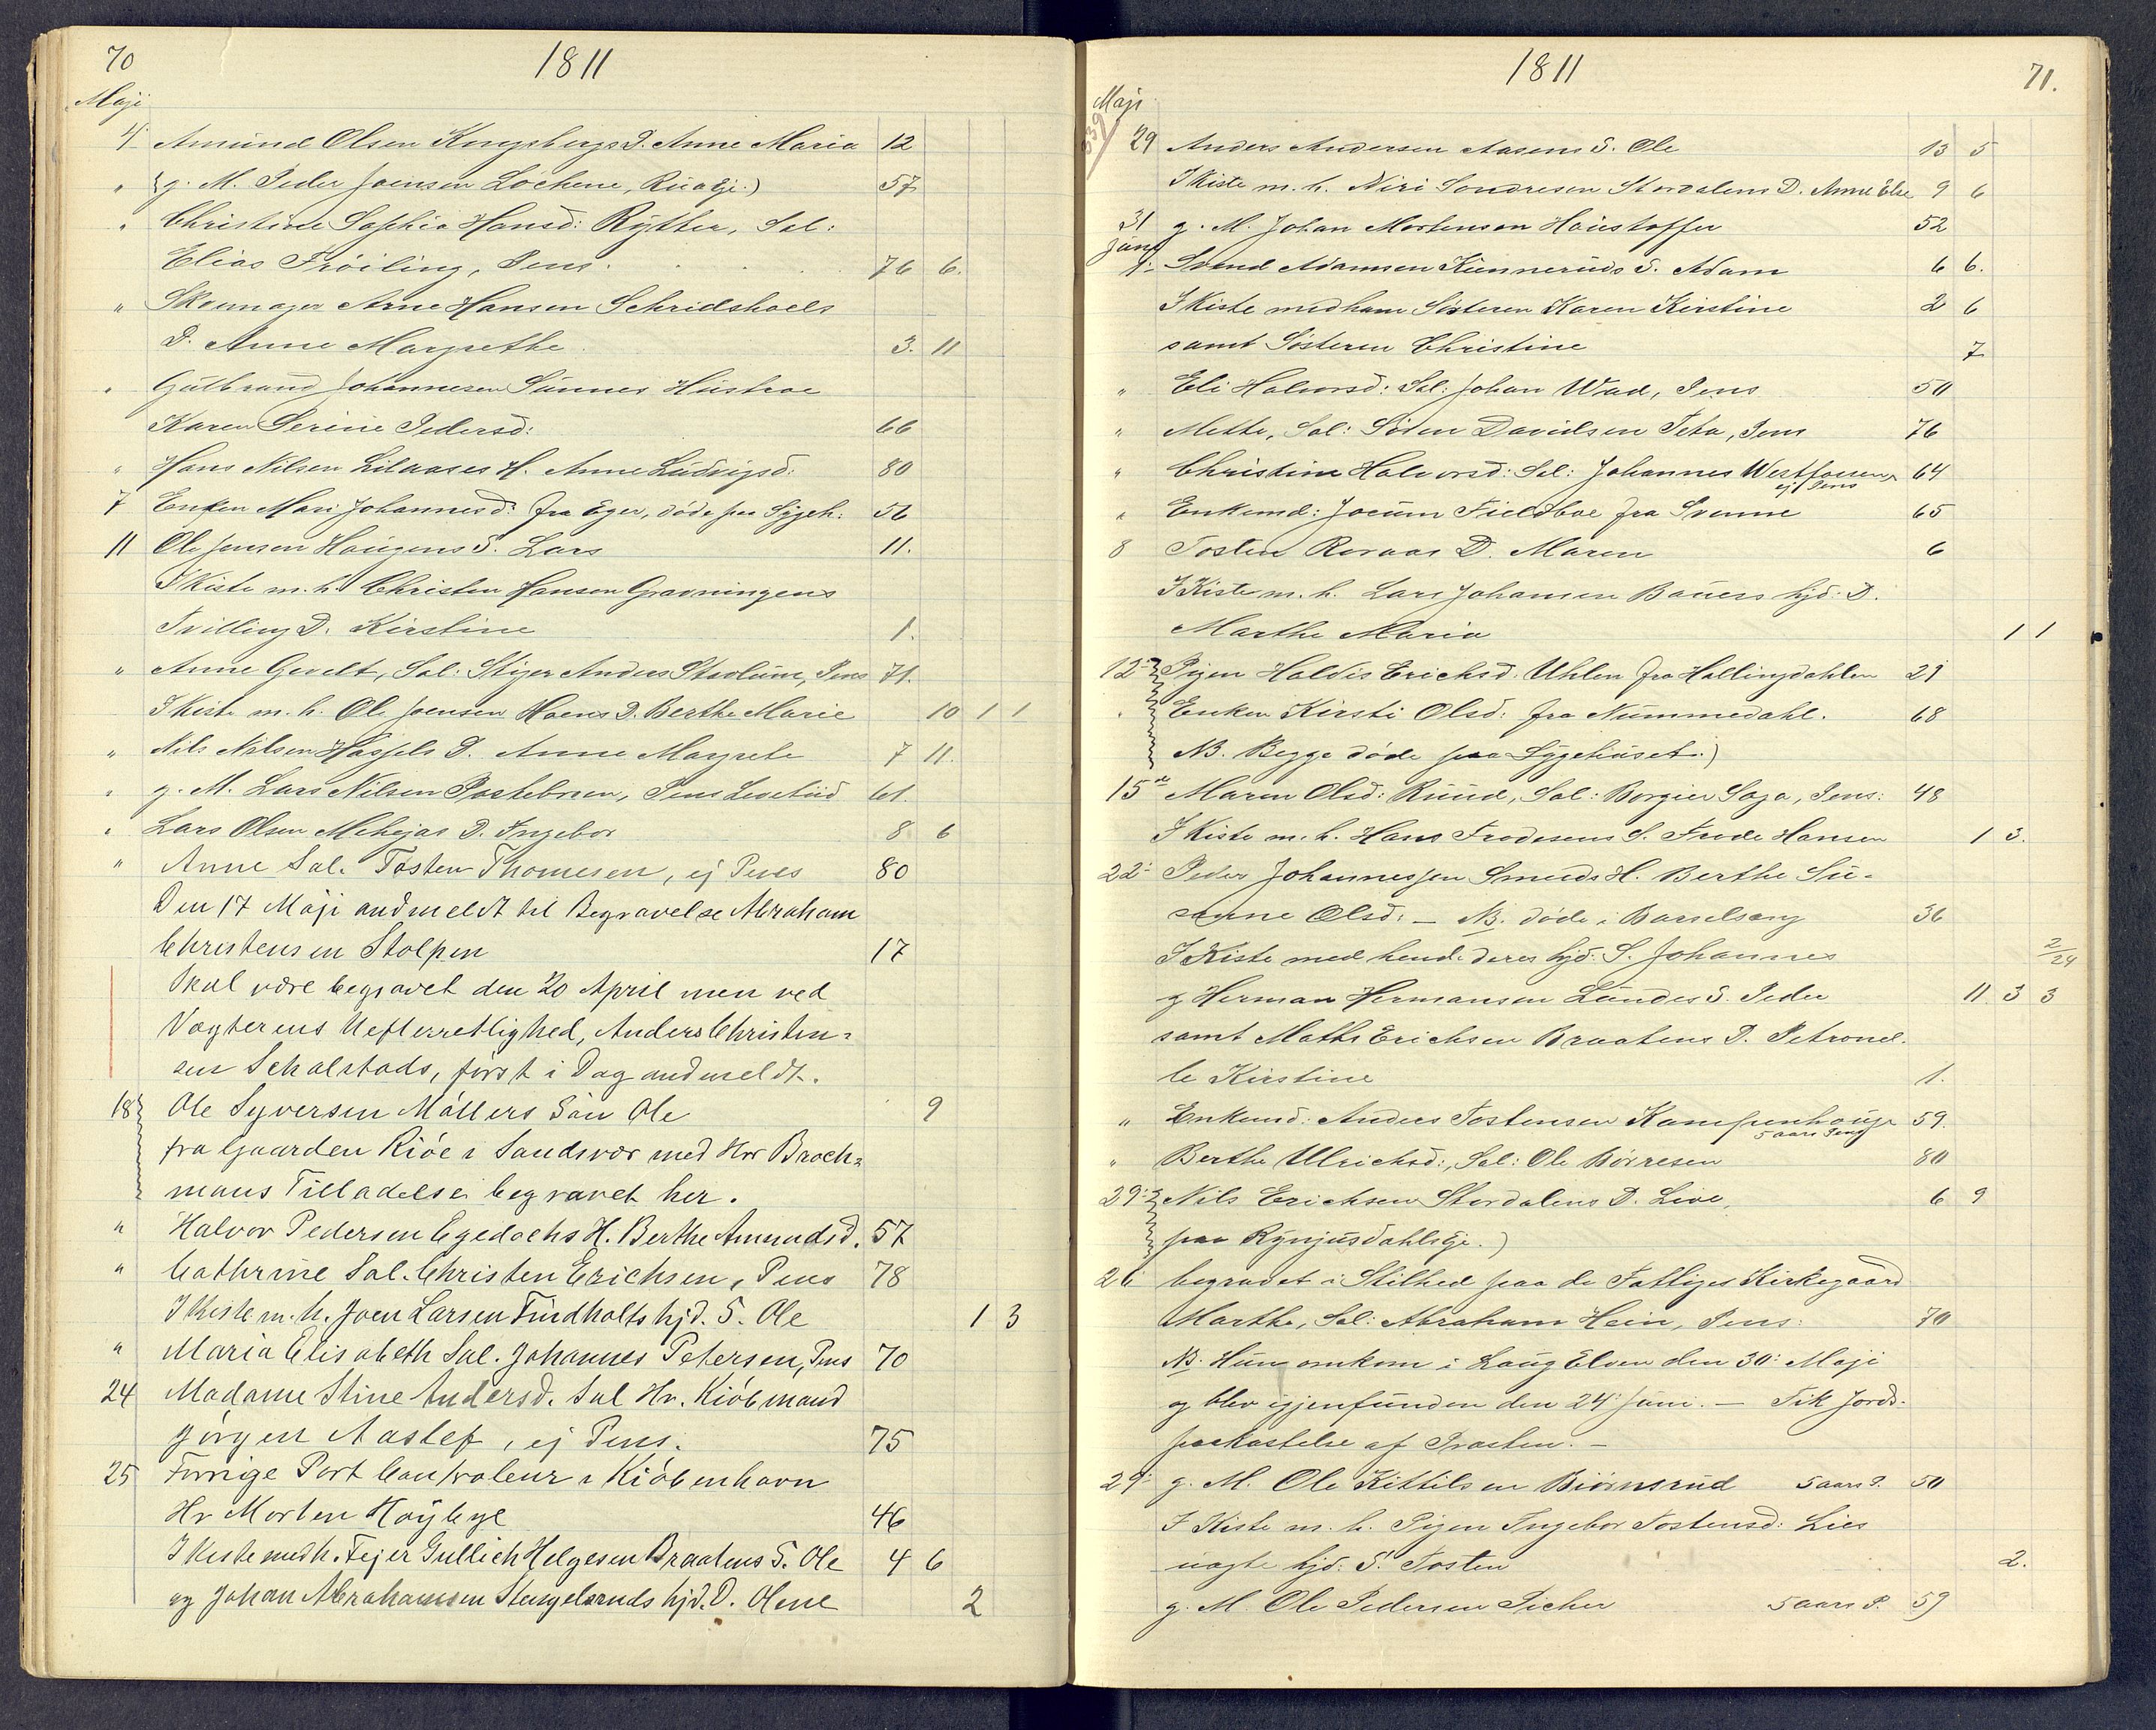 70
1811
Maji
4 Amund Olsen Kongsbergs D. Anne Maria 12
" g. M. Peder Joensen Løchene, 57
" Christine Sophie Hansd: Rytter, Sal:
Elias Frøiling, Pens. 76 6.
" Skoemager Arne Hansen Schridshoels
D. Anne Margrethe 3. 11
" Gulbrand Johannesen Sunnes Hustroe
Karen Serine Pedersd: 66
" Hans Nilsen Lilaases H. Anne Ludvigsd: 80
7 Enken Mari Johannesd: fra Eger, døde paa Sygeh: 56
11 Ole Jensen Haugens S. Lars 11.
I Kiste m. h. Christen Hansen Gravningens
Tvilling D. Kirstine 1.
" Anne Gevelt, Sal: Stiger Anders Stvolum, Pens 71.
I Kiste m. h. Ole Joensen Hoens D. Berthe Marie 10 1 1
" Nils Nilsen Hassels D. Anne Magrete 7 11.
" g. M. Lars Nilsen Postebroen, Pens Levetiid 61.
" Lars Olsen Mehejas D. Ingebor 8 6
" Anne Sal. Tosten Thomesen, ej Pens 80
Den 17 Maji andmeldt til Begravelse Abraham
Christensen Stolpen 17
Skal være begravet den 20 April men ved
Vogterens Uefterretlighed, Anders Christen=
sen Schalstads, først i Dag andmeldt.
18 Ole Syversen Møllers Søn Ole 9
fra Gaarden Kiøe i Sandsvær med Hrr Broch=
manns Tilladelse begravet her.
" Halvor Pedersen Egedachs H. Berthe Amundsd. 57
" Cathrine Sal. Christen Erichsen, Pens 78
I Kiste m. h. Joen Larsen Findholts hjd. S. Ole 1 3
" Maria Elisabeth Sal. Johannes Petersen, Pens 70
24 Madame Stine Andersd. Sal Hr. Kiøbmand
Jørgen Aaslef, ej Pens. 75
25 Forrige Port Contraleur i Kiøbenhavn
Hr Morten Høybye 46
I Kiste med h. Fejer Gullich Helgesen Braatens S. Ole 4 6
og Johan Abrahamsen Stengelsruds hjd. D. Olene 2
1811
71.
Maji
29 Anders Andersen Aasens S. Ole 13 5
I Kiste m. h. Niri Sondresen Stordalens D. Anne Else 9 6
31 g. M. Johan Mortensen Houstoffer 52
Juni
1: Svend Adamsen Kunneruds S. Adam 6 6.
I Kiste med ham Søsteren Karen Kirstine 2 6
samt Søsteren Christine 7
" Eli Halvorsd: Sal: Johan Wad, Pens 50
" Mette, Sal: Søren Davidsen Teta, Pens 76
" Christine Halvorsd: Sal: Johannes Westfossen 64
ej Pens
" Enkemd: Jocum Fieldboe fra Svenne 65
8 Tosten Revaas D. Maren 6
I Kiste m. h. Lars Johansen Bauers hjd: D.
Marthe Maria 1 1
12: Pigen Haldis Erichsd. Uhlen fra Hallingdahlen 21
Enken Kirsti Olsd: fra Nummedahl. 68
NB. Begge døde paa Sygehuset.)
15de Maren Olsd: Ruud, Sal: Borgier Saga, Pens: 48
I Kiste m. h. Hans Frodesens S. Frode Hansen 1 3.
22: Peder Johannessen Smeds H. Berthe Su-
sanne Olsd: – NB. døde i Barselseng 36
I Kiste med hende deres hjd: S. Johannes 2/24
g Herman Hermansen Lundes S. Peder 11 3 3
samt Mathis Erichsen Braatens D. Petronel-
le Kirstine 1.
" Enkemd: Anders Tostensen Kampenhoug 59.
5 aars Pens
" Berthe Ulrichsd:, Sal: Ole Børresen 80
29: Nils Erichsen Stordalens D. Live, 6 9
paa Rynjusdahls Gje.)
26 begravet i Stilhed paa de Fattiges Kirkegaard
Marthe, Sal: Abraham Hein, Pens: 70
NB. Hun omkom i Laug Elven den 30: Maji
og blev igjenfunden den 24: Juni. – Fik Jords-
paakastelse af Præsten. –
29: g. M. Ole Kittilsen Biørnsrud 5 aars P. 50
I Kiste m. h. Pigen Ingebor Tostensd: Lies
uægte hjd: S. Tosten 2.
g. M. Ole Pedersen Picher 5 aars P. 59